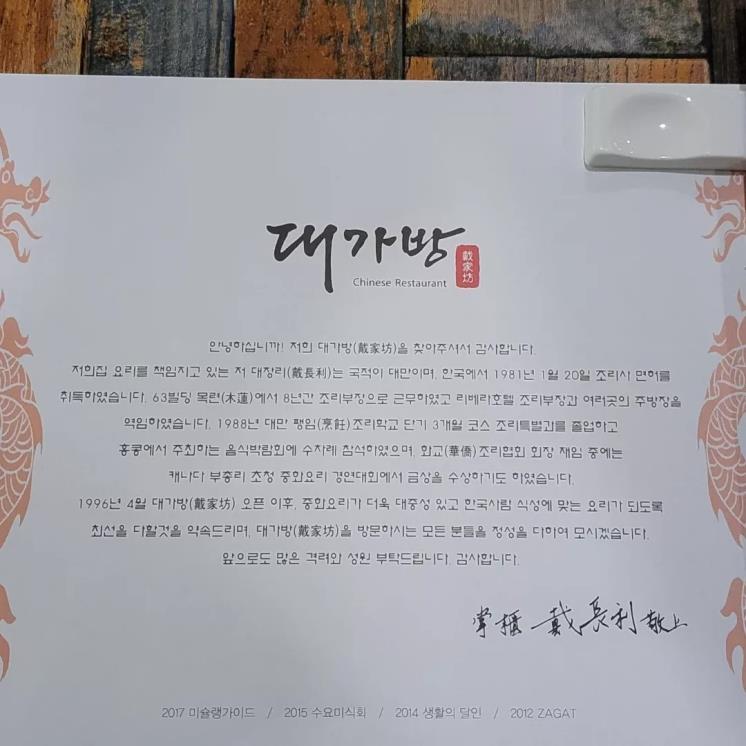 대가방
Chinese Restaurant
戴家坊
안녕하십니까! 저희 대가방(戴家坊)을 찾아주셔서 감사합니다.
저희집 요리를 책임지고 있는 저 대장리(戴長利)는 국적이 대만이며, 한국에서 1981년 1월 20일 조리사 면허를
취득하였습니다. 63빌딩 목련(木蓮)에서 8년간 조리부장으로 근무하였고 리베라호텔 조리부장과 여러곳의 주방장을
역임하였습니다. 1988년 대만 팽임(烹飪)조리학교 단기 3개월 코스 조리특별과를 졸업하고
홍콩에서 주최하는 음식박람회에 수차례 참석하였으며, 화교(華僑)조리협회 회장 재임 중에는
캐나다 부총리 초청 중화요리 경연대회에서 금상을 수상하기도 하였습니다.
1996년 4월 대가방(戴家坊) 오픈 이후, 중화요리가 더욱 대중성 있고 한국사람 식성에 맞는 요리가 되도록
최선을 다할것을 약속드리며, 대가방(戴家坊)을 방문하시는 모든 분들을 정성을 다하여 모시겠습니다.
앞으로도 많은 격려와 성원 부탁드립니다. 감사합니다.
掌櫃 戴長利 敬上
2017 미슐랭가이드 / 2015 수요미식회 / 2014 생활의 달인 / 2012 ZAGAT